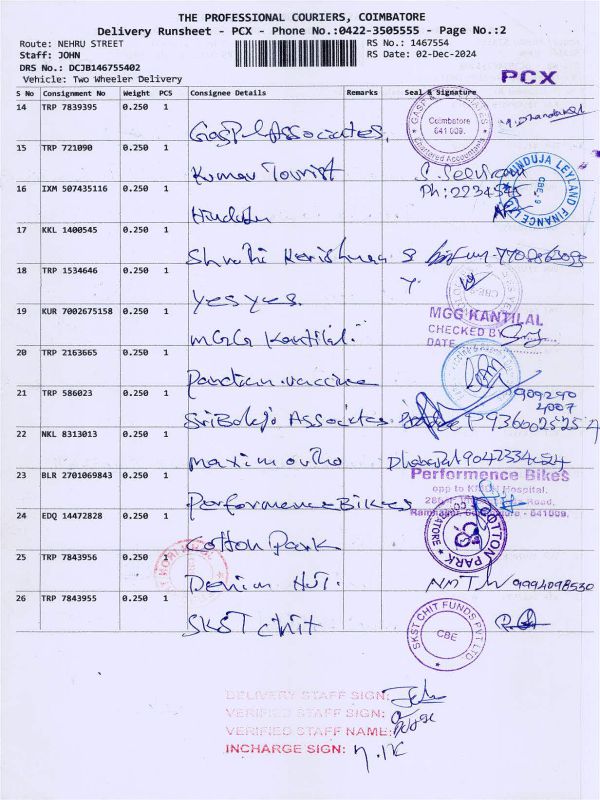 THE PROFESSIONAL COURIERS, COIMBATORE
Delivery Runsheet - PCX - Phone No.:0422-3505555 - Page No.:2
Route: NEHRU STREET RS No.: 1467554
Staff: JOHN RS Date: 02-Dec-2024
DRS No.: DCJB146755402
Vehicle: Two Wheeler Delivery
PCX
S No Consignment No Weight PCS Consignee Details Remarks Seal & Signature
14 TRP 7839395 0.250 1
Gaspel Associates,
Coimbatore
641 009.
Chartered Accountants
15 TRP 721090 0.250 1
Kumar Tourist
Ph: 2234545
HINDUJA LEYLAND FINANCE
CBE. 9
16 IXM 507435116 0.250 1
Hinduja
17 KKL 1400545 0.250 1
Shruthi Karishma
18 TRP 1534646 0.250 1
yes yes.
CBE
19 KUR 7002675158 0.250 1
MGG Kantilal
MGG KANTILAL
CHECKED BY
DATE
20 TRP 2163665 0.250 1
Pandian vaccine
21 TRP 586023 0.250 1
Sri Balaji Associates
909290
4007
9366025254
22 NKL 8313013 0.250 1
maxim ortho
9042334524
23 BLR 2701069843 0.250 1
Performence Bikes
Performence Bikes
opp to KMCH Hospital,
Road,
Coimbatore - 641009.
24 EDQ 14472828 0.250 1
Cotton Park
COTTON PARK
25 TRP 7843956 0.250 1
Denim Hut.
9994098530
26 TRP 7843955 0.250 1
SKST chit
SKST CHIT FUNDS PVT LTD
CBE
DELIVERY STAFF SIGN:
VERIFIED STAFF SIGN:
VERIFIED STAFF NAME:
INCHARGE SIGN: